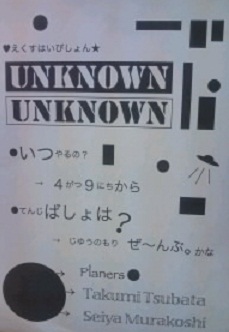 ♥えくすはいびしょん★
UNKNOWN
UNKNOWN
●いつやるの?
→ 4がつ9にちから
●てんじばしょは?
→ じゆうのもり ぜ〜んぶ。かな
→ Planers●
→ Takumi Tsubata
→ Seiya Murakoshi